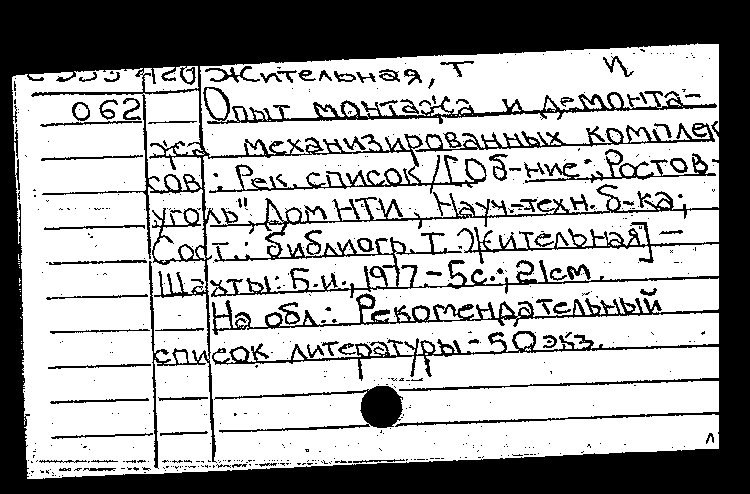 Жительная, Т И
062 Опыт монтажа и демонта-
жа механизированных комплек
сов : Рек. список / [Об-ние "Ростов-
уголь", Дом НТИ, Науч.-техн. б-ка;
Сост.: библиогр. Т. Жительная] -
Шахты: Б.и., 1977. - 5с.; 21см.
На обл.: Рекомендательный
список литературы. - 50 экз.